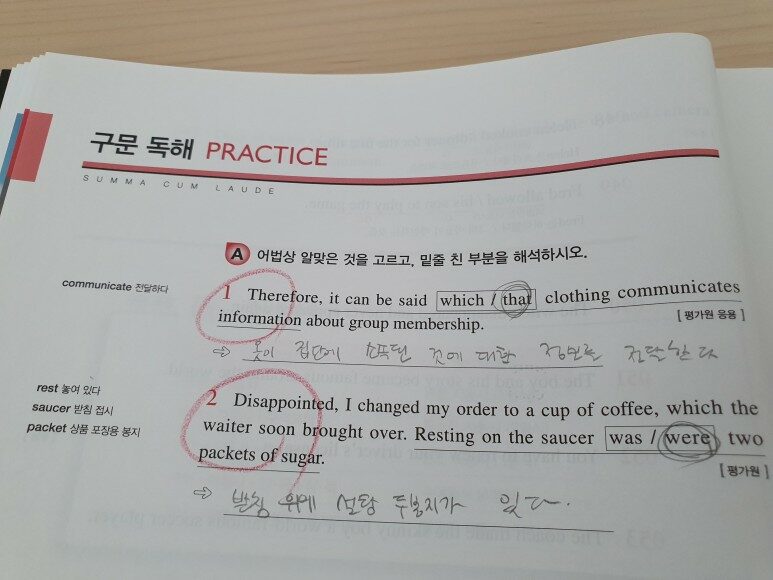 구문 독해 PRACTICE
SUMMA CUM LAUDE
A 어법상 알맞은 것을 고르고, 밑줄 친 부분을 해석하시오.
communicate 전달하다
1 Therefore, it can be said which / that clothing communicates
information about group membership.
[평가원 응용]
⇨ 옷이 집단에 소속된 것에 대한 정보를 전달한다
rest 놓여 있다
saucer 받침 접시
packet 상품 포장용 봉지
2 Disappointed, I changed my order to a cup of coffee, which the
waiter soon brought over. Resting on the saucer was / were two
packets of sugar.
[평가원]
⇨ 받침 위에 설탕 두봉지가 있다.